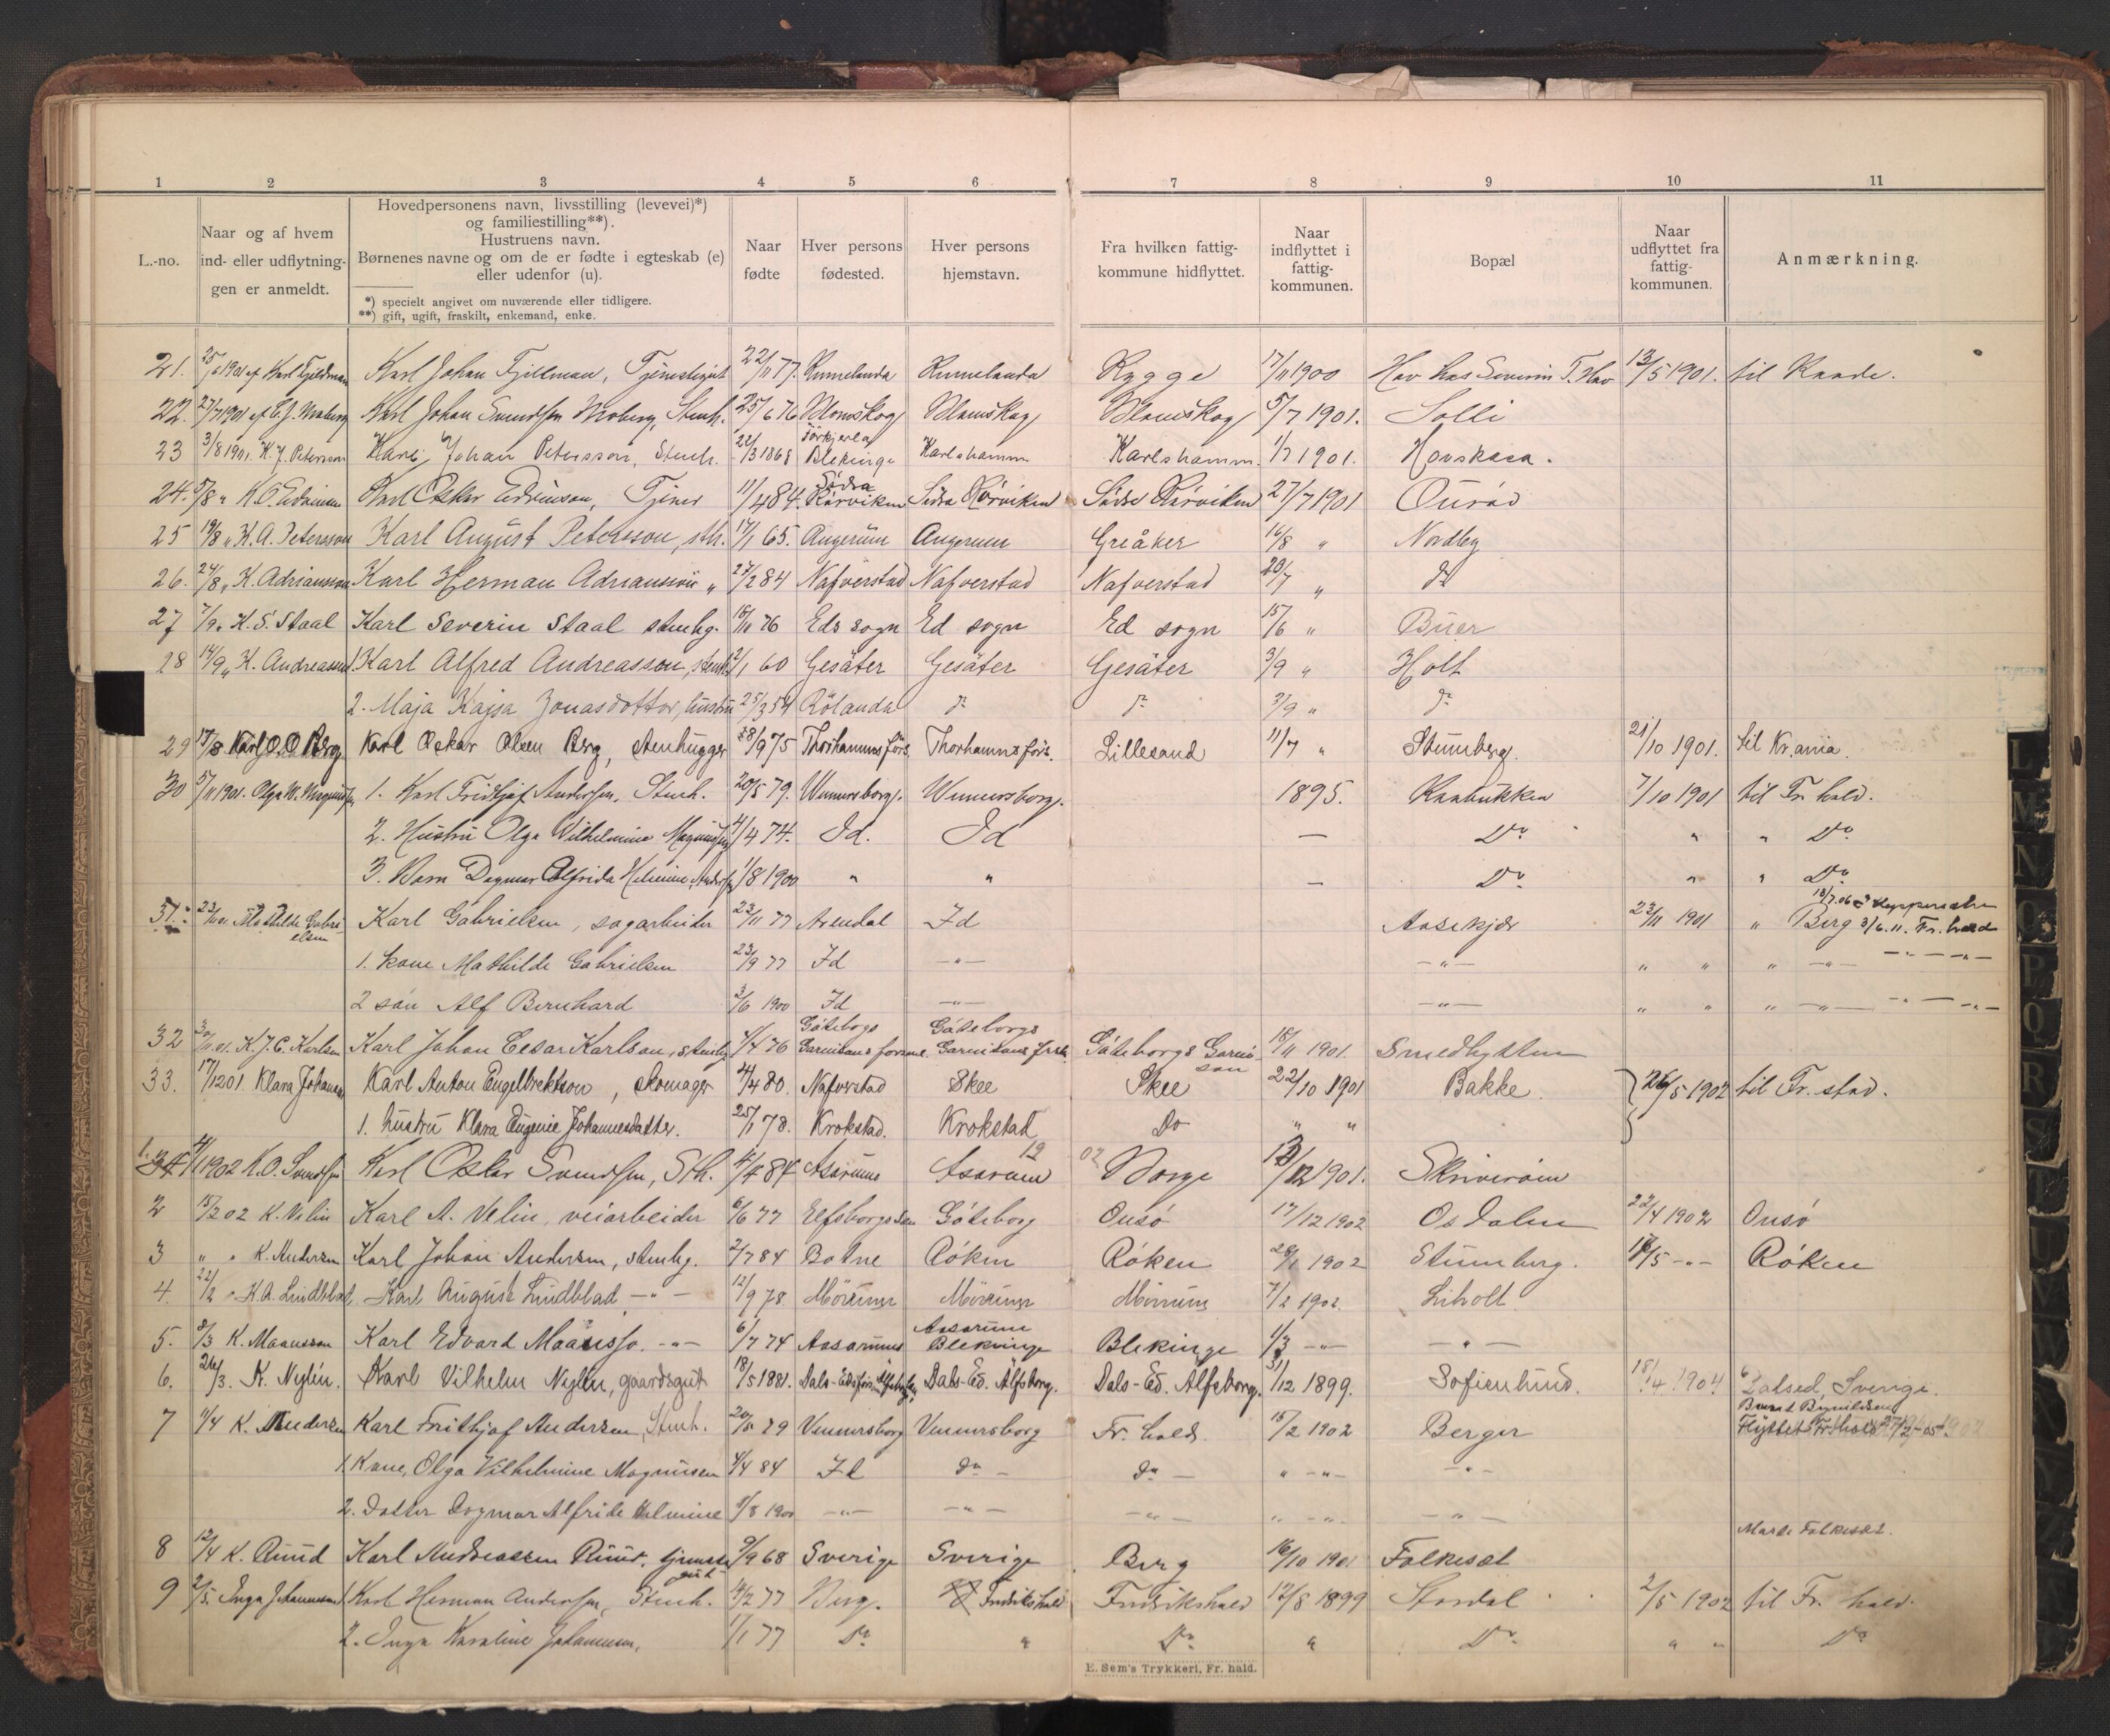 1 2 3 4 5 6 7 8 9 10 11
L.-no.
Naar og af hvem
ind- eller udflytnin-
gen er anmeldt.
Hovedpersonens navn, livsstilling (levevei)*)
og familiestilling**).
Hustruens navn.
Børnenes navne og om de er fødte i egteskab (e)
eller udenfor (u).
*) specielt angivet om nuværende eller tidligere.
**) gift, ugift, fraskilt, enkemand, enke.
Naar
fødte
Hver persons
fødested.
Hver persons
hjemstavn.
Fra hvilken fattig-
kommune hidflyttet.
Naar
indflyttet i
fattig-
kommunen.
Bopæl
Naar
udflyttet fra
fattig-
kommunen.
Anmærkning.
21. Karl Johan 22/11 77. Rygge 17/11 1900 13/5 1901. til Raade.
22. 27/7 1901 Karl Johan Moberg, Stenh. 25/6 76 5/7 1901. Solli
23 3/8 1901. K. J. Petersson Karl Johan Petersson, Stenh. 22/3 1868 Blekinge Karlshamn Karlshamn 1/7 1901.
24. 5/8 " Karl Oskar Tjener 11/4 84. Södra Rörviken Södra Rörviken Södra Rörviken 27/7 1901
25 19/8 " K. A. Petersson Karl August Petersson, sth. 17/1 65. Angerum Angerum Greåker 16/8 " Nordby
26. 24/8 " K. Adriansson Karl Herman Adriansson " 27/2 84 Nafverstad Nafverstad Nafverstad 20/7 " do
27 7/9 " K. S. Staal Karl Severin Staal stenhg. 18/11 76 Eds sogn Ed sogn Ed sogn 15/6 " Buer
28 14/9 " K. Andreasson 1. Karl Alfred Andreasson, stenh. 2/1 60 Gesäter Gesäter Gesäter 3/9 " Holt
2. Maja Kajsa Jonasdotter, hustru 25/3 54 Rölanda do do 3/9 " do
29 17/8 Karl O. O. Berg Karl Oskar Olsen Berg, stenhugger 28/9 75 Thorhamns förs. Thorhamns förs. Lillesand 11/7 " Stumberg. 21/10 1901. til Kr.ania.
30 5/11 1901. Olga W. Magnussen 1. Karl Fridtjof Anderssen, Stenh. 20/5 79. Wenersborg. Wenersborg. 1895. Kaabukken 7/10 1901 til Fr. hald.
2. Hustru Olga Wilhelmine Magnussen 4/4 74. Id. Id — Do " " Do
3. Barn Dagmar Alfrida Helmine Anderssen 1/8 1900 " " — Do " " Do
31. 23/11 01. Mathilde Gabrielsen Karl Gabrielsen, sagarbeider 23/11 77 Arendal Id Aasekjær 23/11 1901 " Berg 3/6.11. Fr. hald
1. Kone Mathilde Gabrielsen 23/9 77 Id —"— —"— " " " —"—
2 søn Alf Bernhard 3/6 1900 Id —"— —"— " " " —"—
32 30/11.01. K. J. C. Karlson Karl Johan Cesar Karlson, stenhg. 4/4 76 Göteborgs Garnisons forsml. Göteborgs Garnisons Göteborgs Garnison 18/11 1901. Smedhytten
33. 17/12 01. Klara Johannes Karl Anton Engelbrektson, skomager 4/4 80. Nafverstad Skee Skee 22/10 1901 Bakke. 26/5 1902 til Fr. stad.
1. hustru Klara Eugenie Johannesdatter. 25/1 78. Krokstad. Krokstad Do " "
1. 34 4/1 1902 K. O. Svendsen Karl Oskar Svendsen, Sth. 4/4 84 Asarum Asarum 12 02 Borge 13/12 1901. Skriverøen
2 15/2 02 K. Velin Karl A. Velin, veiarbeider 6/6 77 Elfsborgs län Göteborg Onsö 17/12 1902 Osdalen 22/4 1902 Onsö
3 " " K. Andersen Karl Johan Andersen, stenhg. 2/7 84 Botne Röken Röken 28/1 1902 Stumberg. 18/5 -"- Röken
4. 22/2 " K. A. Lindblad Karl August Lindblad —"— 12/9 78. Mörrum Mörrum Mörrum 7/2 1902. Liholt
5. 8/3 K. Maansson Karl Edvard Maansso. -"- 6/7 74 Aasarums Aasarum Blekinge Blekinge 1/3 -"- —"—
6. 26/3. K. Nylén. Karl Vilhelm Nylén, gaardsgut 18/5 1881. Dals-Eds förs. Älfsborg Dals-Ed. Älfsborg. Dals-Ed. Älfsborg. 31/12 1899. Sofienlund. 18/4 1904 Dalsed, Sverige.
7 11/4 K. Andersen Karl Frithjof Andersen, Stenh. 20/5 79 Venersborg Venersborg Fr. hald. 15/2 1902 Berger Flyttet Fr. hald 27/2-05.
1. Kone, Olga Vilhelmine Magnussen 4/4 84 Id do — do — " -"- -"-
2. Datter Dagmar Alfride Helmine 1/8 1900 -"- -"- -"- " -"- -"-
8 12/4 K. Ruud Karl Andreassen Ruud, tjenestegut 9/9 68 Sverige Sverige Berg 16/10 1901 Folkesæt
9 2/5. Inga Johannessen 1. Karl Herman Anderssen, Stenh. 4/2 77 Berg. Fredrikshald Fredrikshald 12/8 1899 Stordal 2/5 1902 til Fr. hald.
2. Inga Karoline Johannessen, 1/1 77 Do " Do " Do " " Do
E. Sem's Trykkeri, Fr. hald.
L
M
N
O
P
Q
R
S